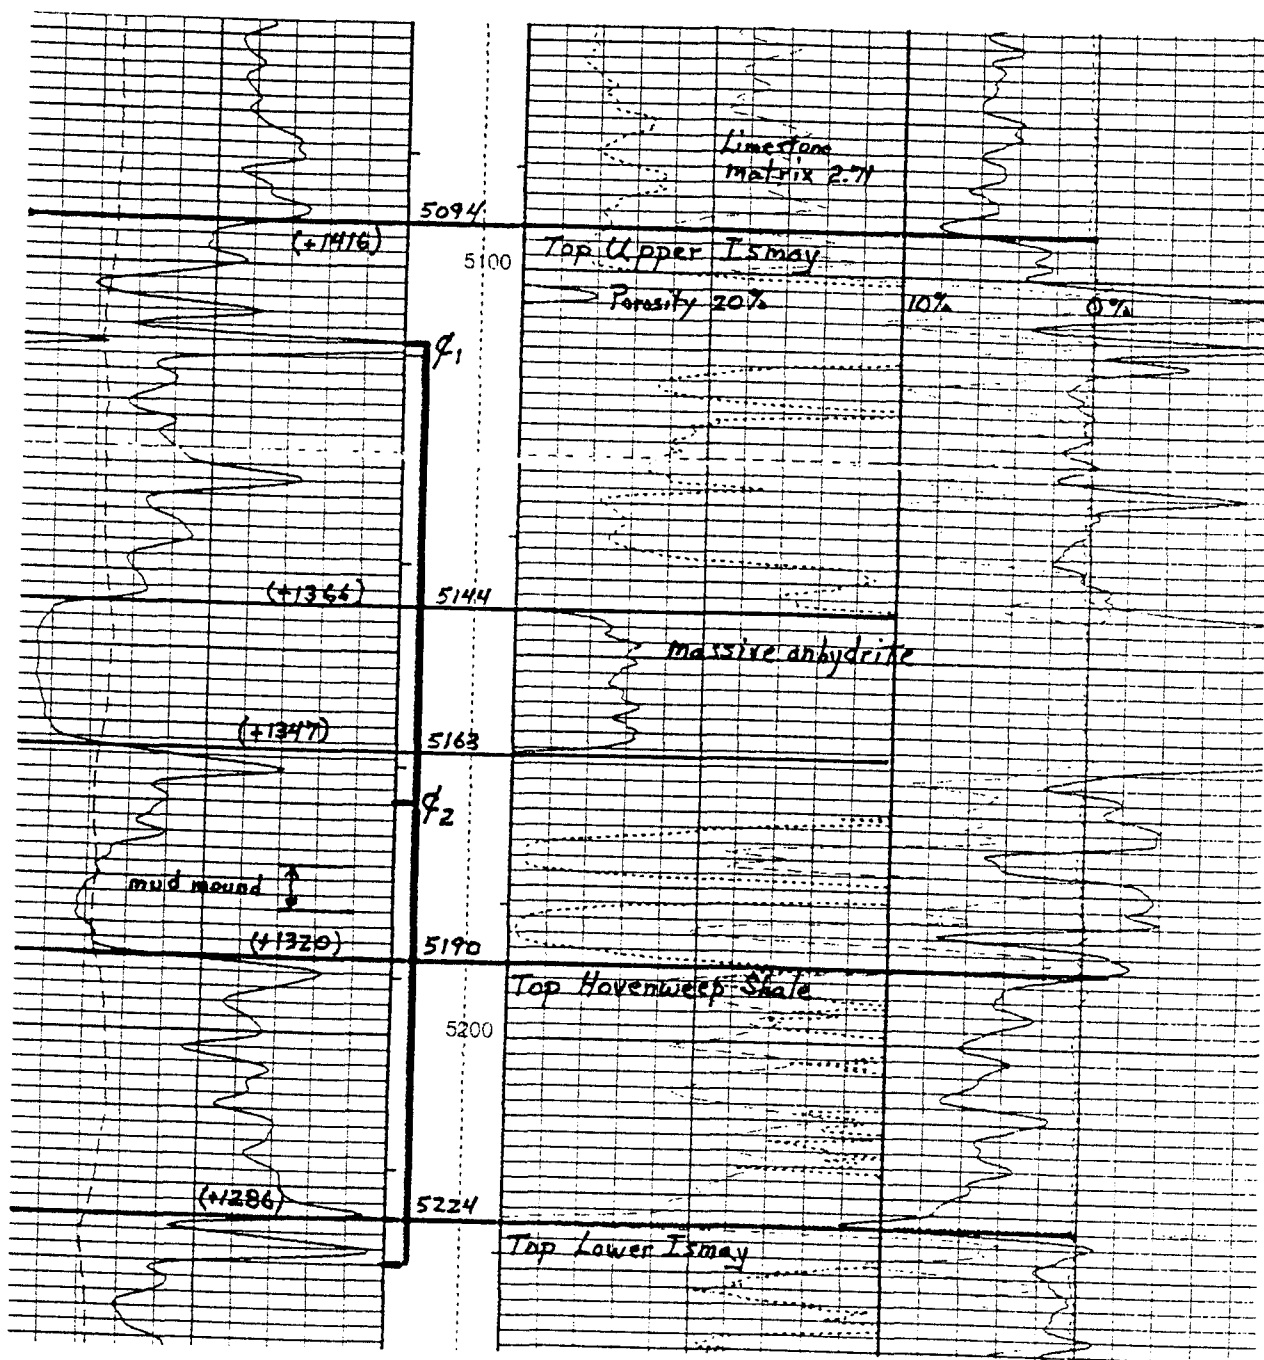 Limestone
matrix 2.71
5094
(+1416)
Top Upper Ismay
5100
Porosity 20% 10% 0%
¢1
(+1366) 5144
massive anhydrite
(+1347) 5163
¢2
mud mound
(+1320) 5190
Top Hovenweep Shale
5200
(+1286) 5224
Top Lower Ismay